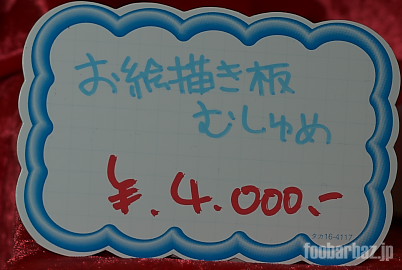 お絵描き板
むしゅめ
¥.4.000.-
タカ16-4117
foobarbaz.jp